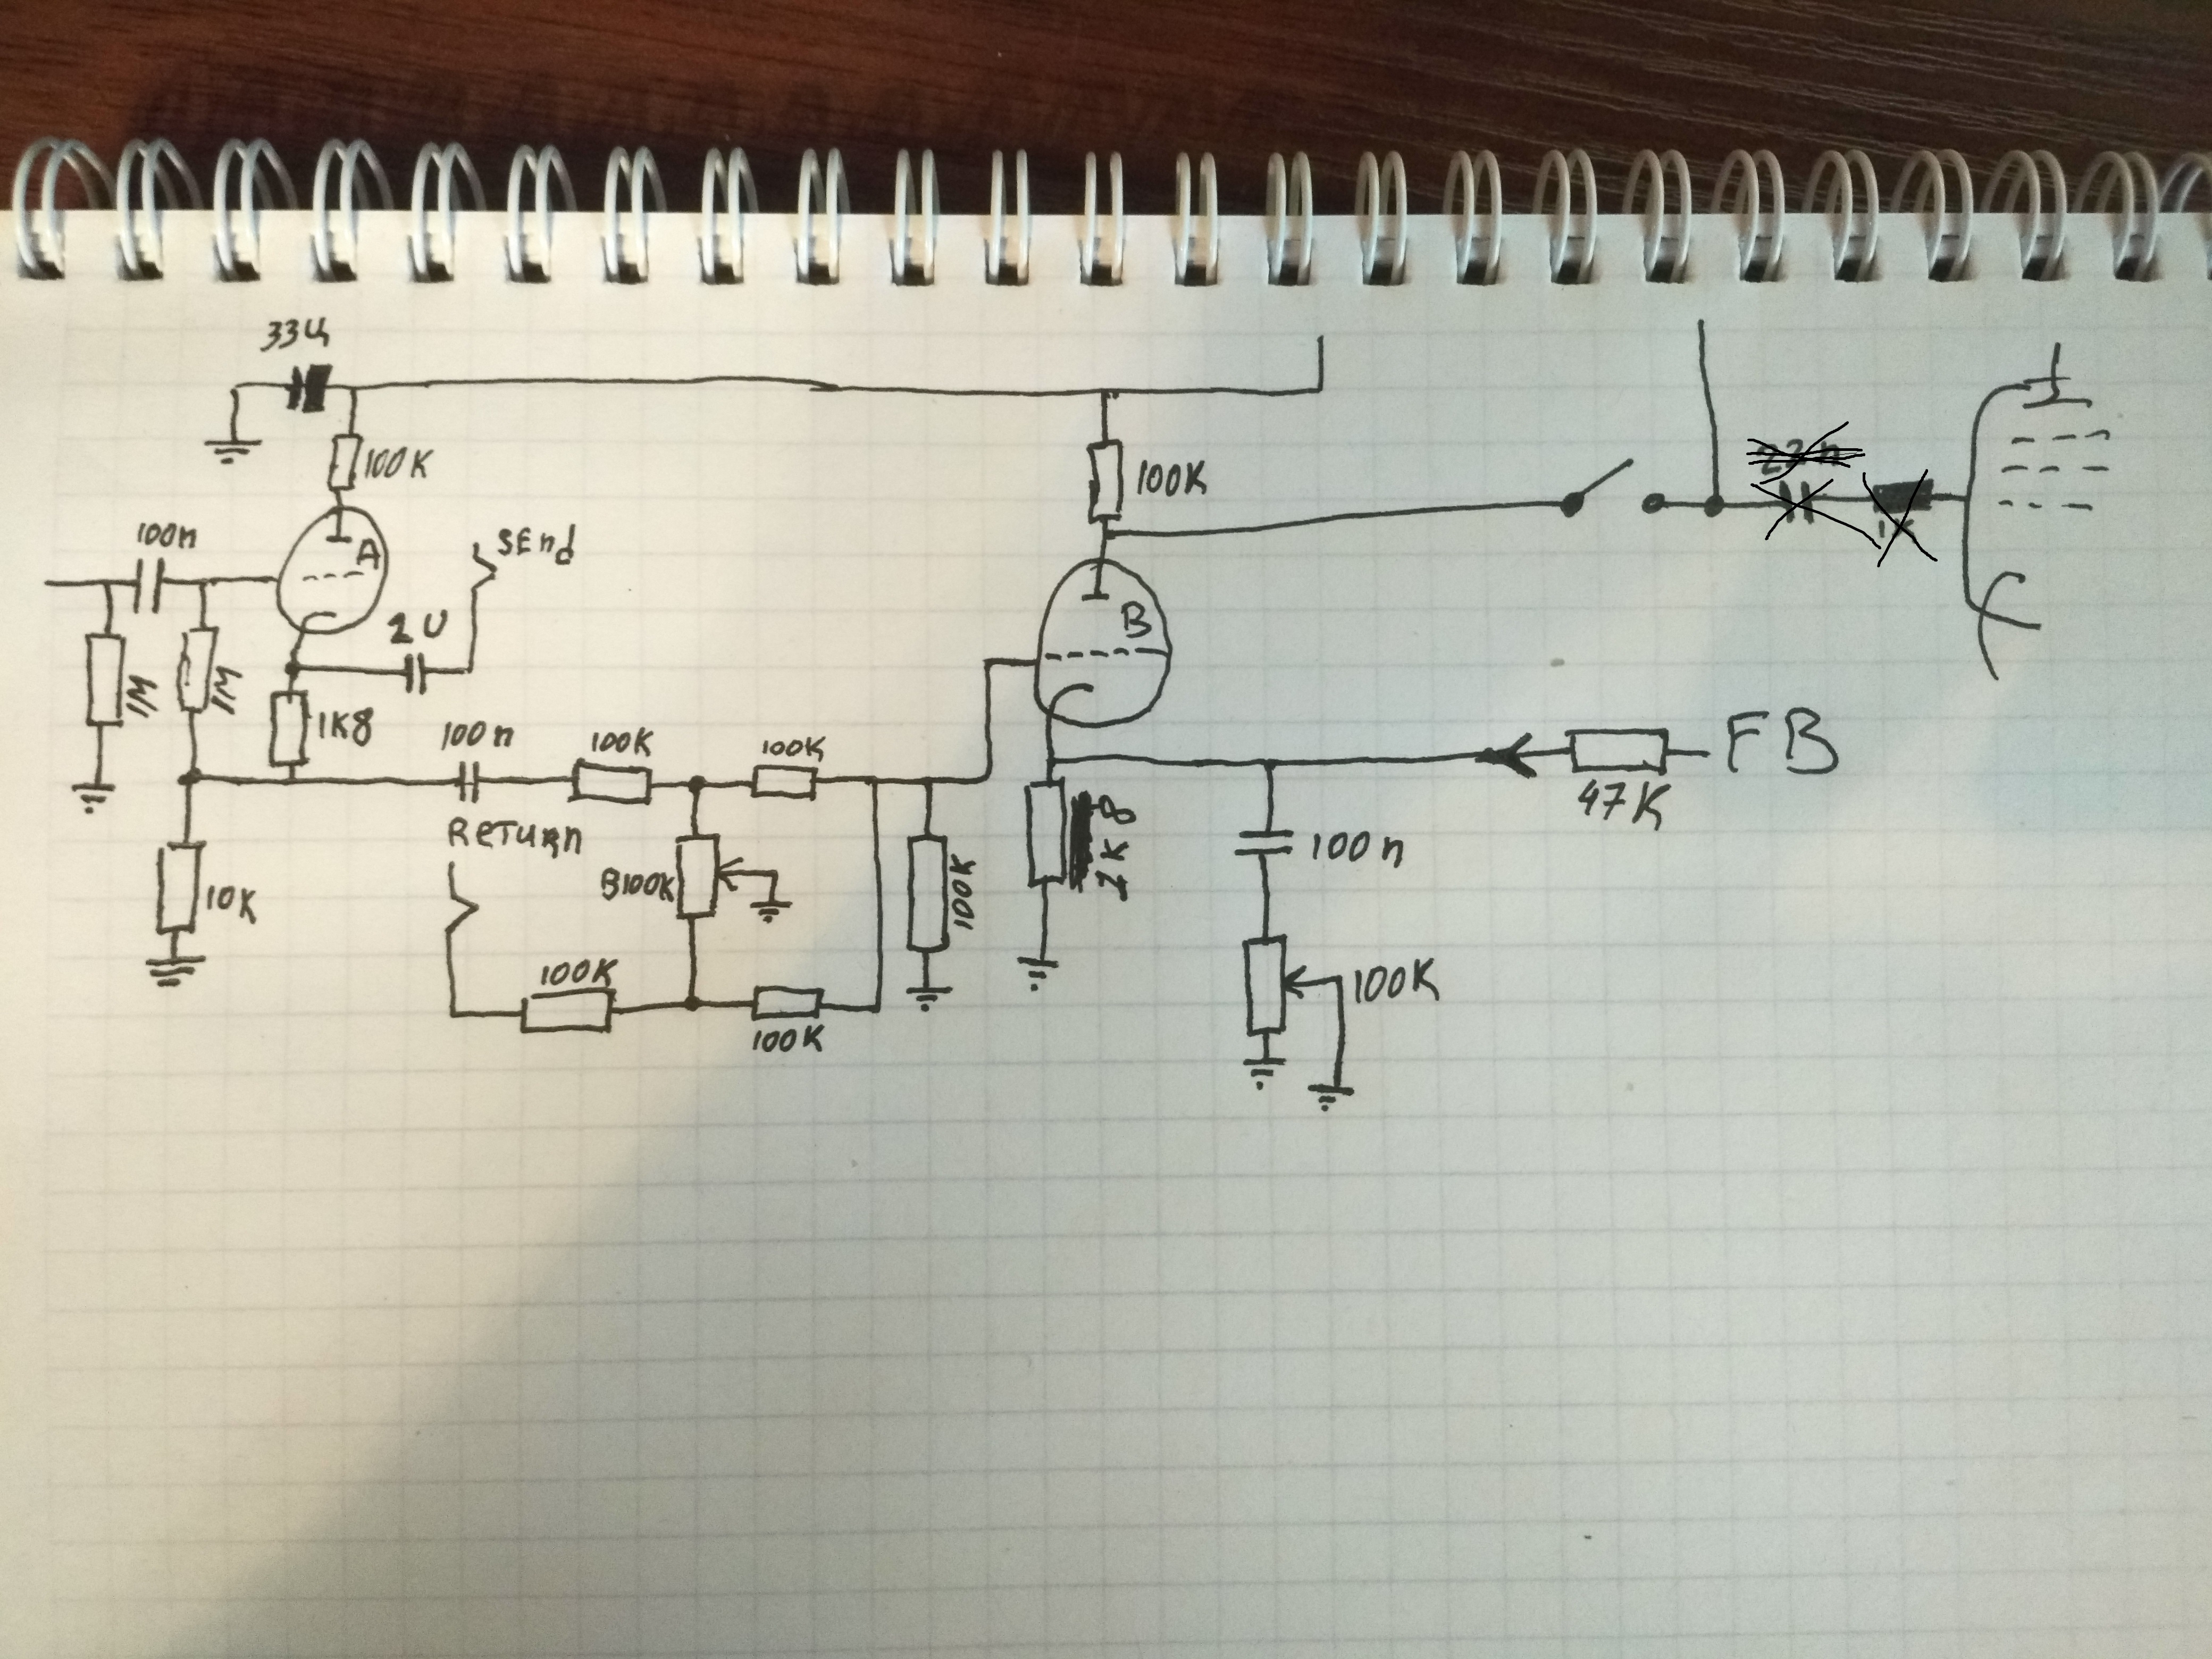 33u
100K
100K
22n
100n
A
SEnd
B
2U
1M
1M
1K8
100n
100K
100K
FB
47K
RETURN
B100K
100K
1K8
100n
10K
100K
100K
100K
1K